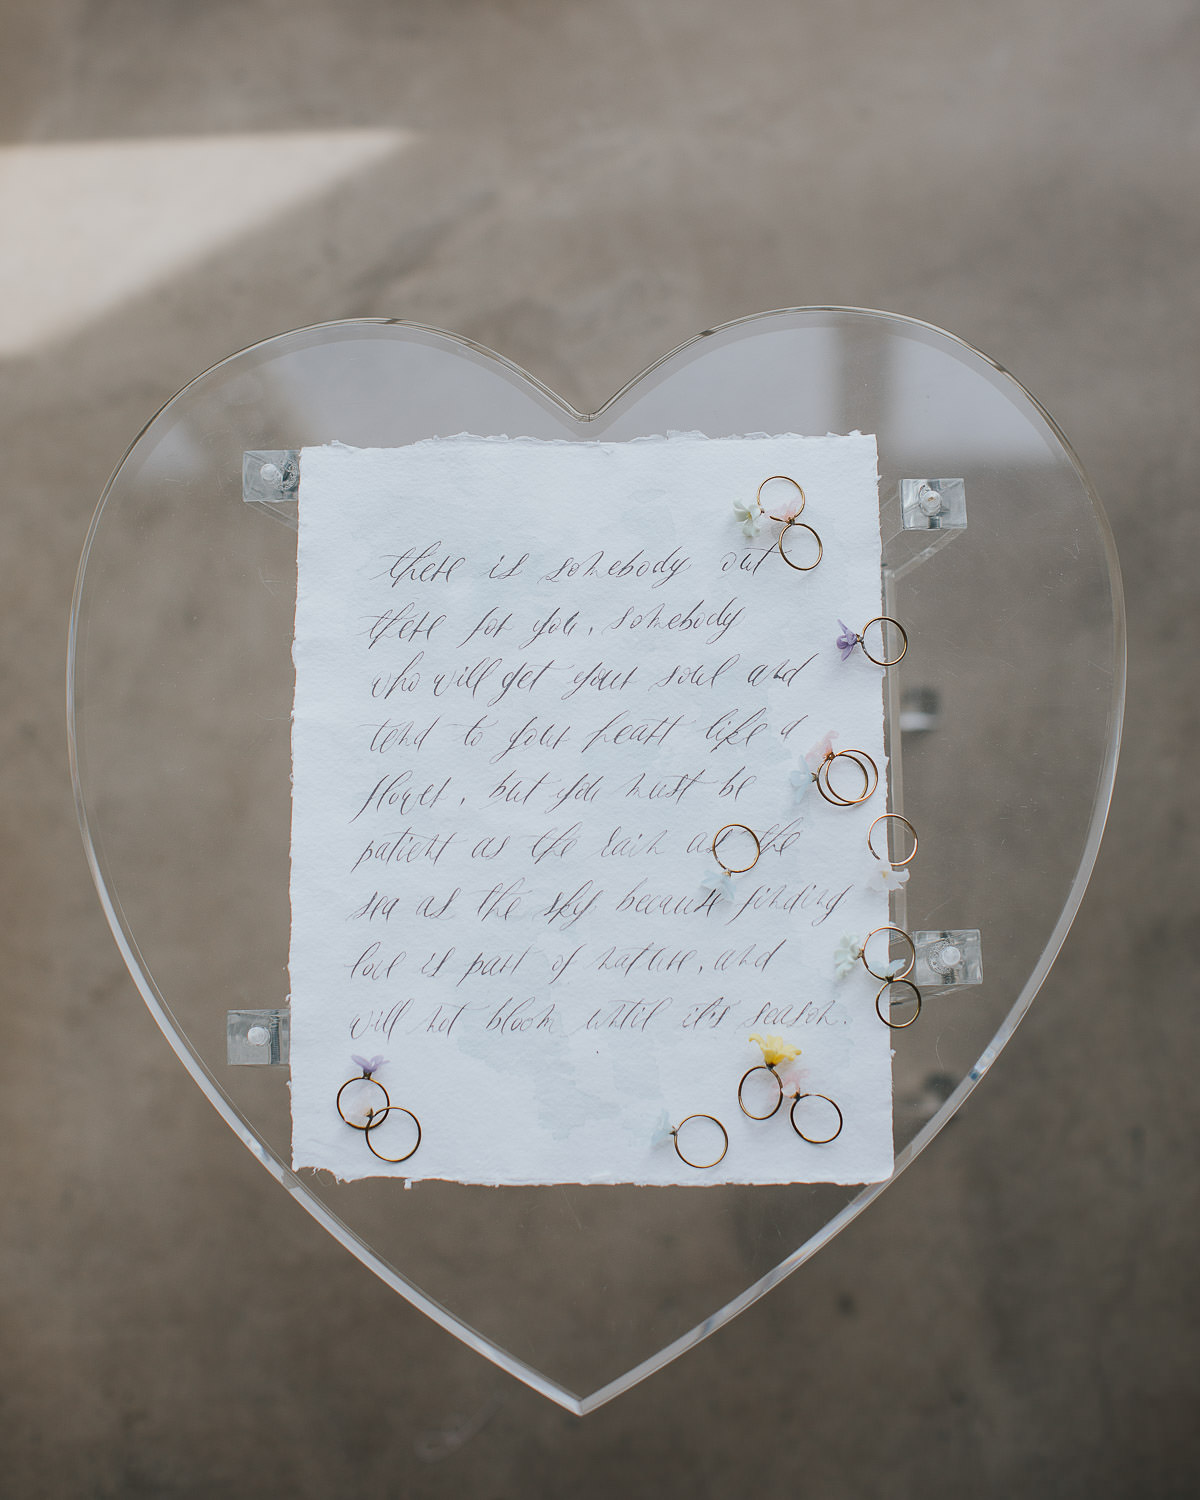 there is somebody out
there for you, somebody
who will get your soul and
tend to your heart like a
flower, but you must be
patient as the rain as the
sea as the sky because finding
love is part of nature, and
will not bloom until it's season.